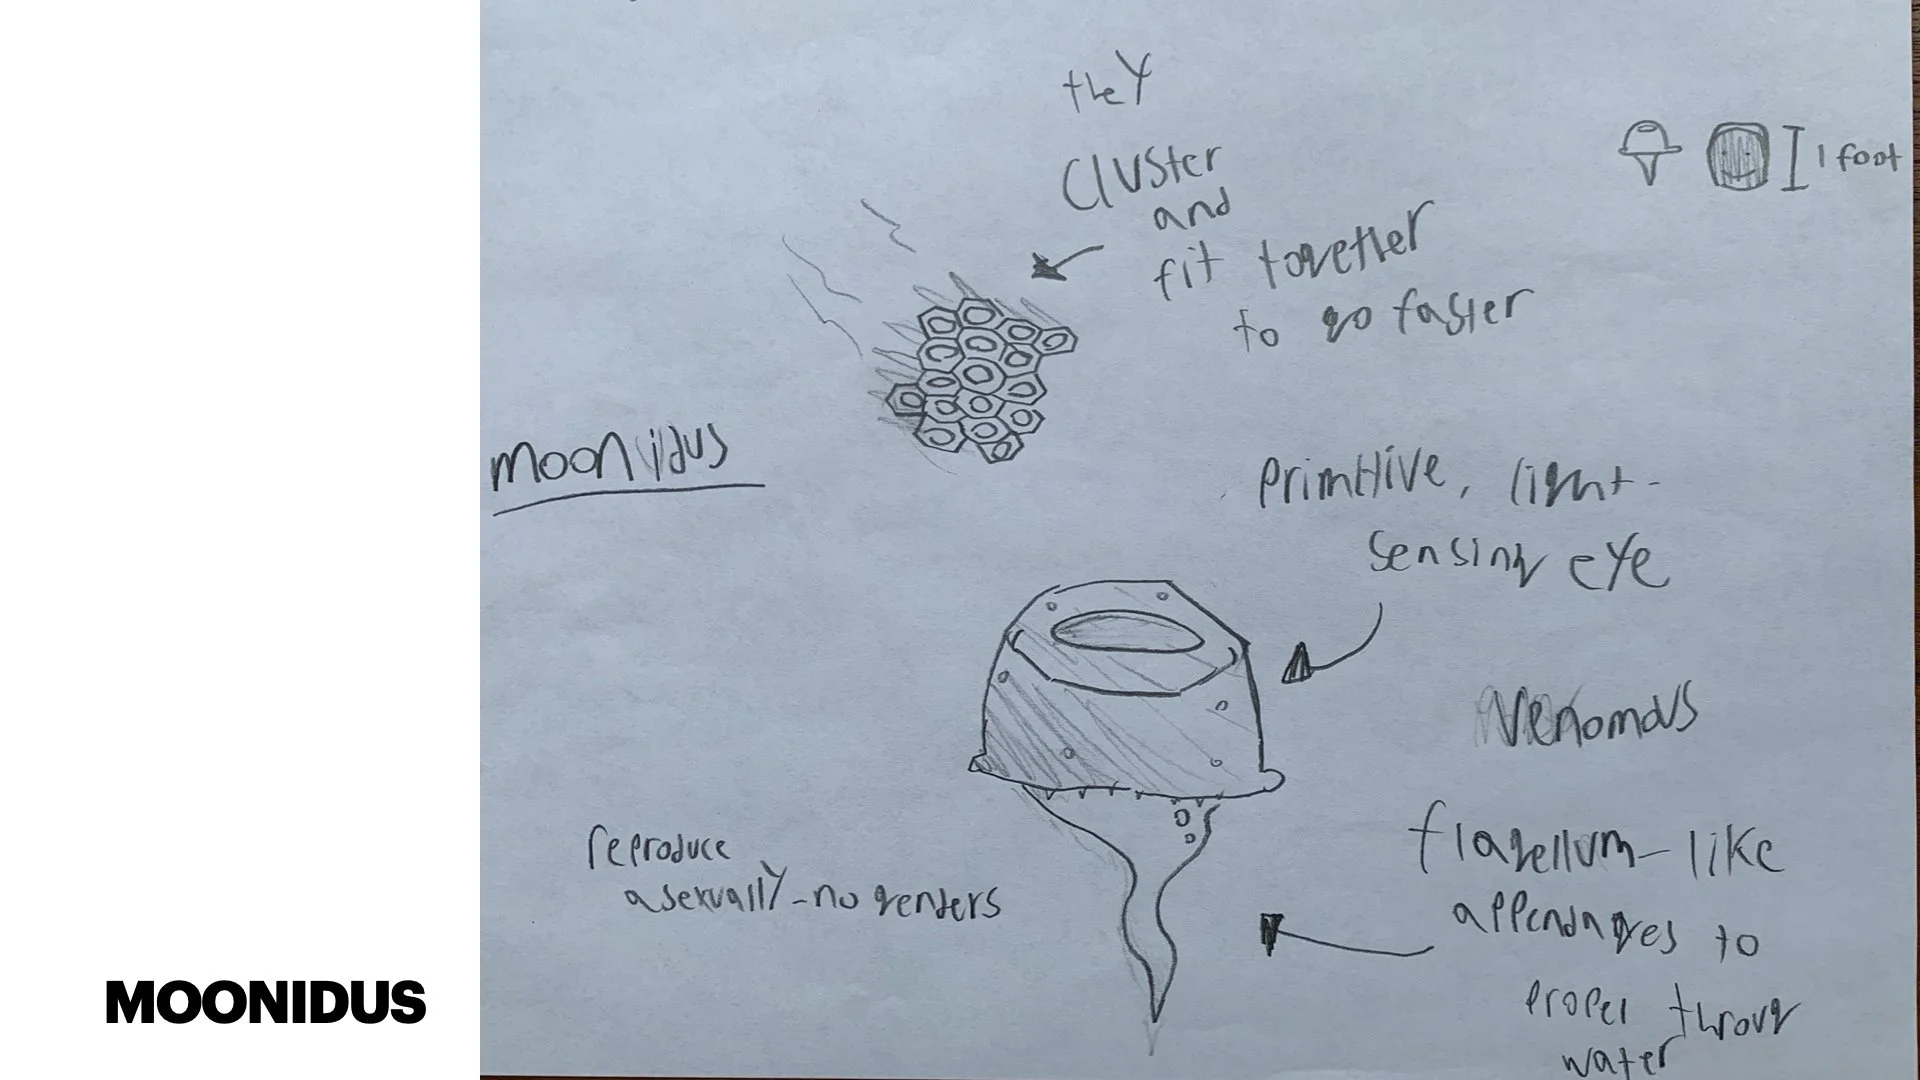 they
cluster
and
fit together
to go faster
1 foot
moonidus
primitive, light-
sensing eye
venomous
flagellum-like
appendages to
propel throug
water
reproduce
asexually-no genders
MOONIDUS